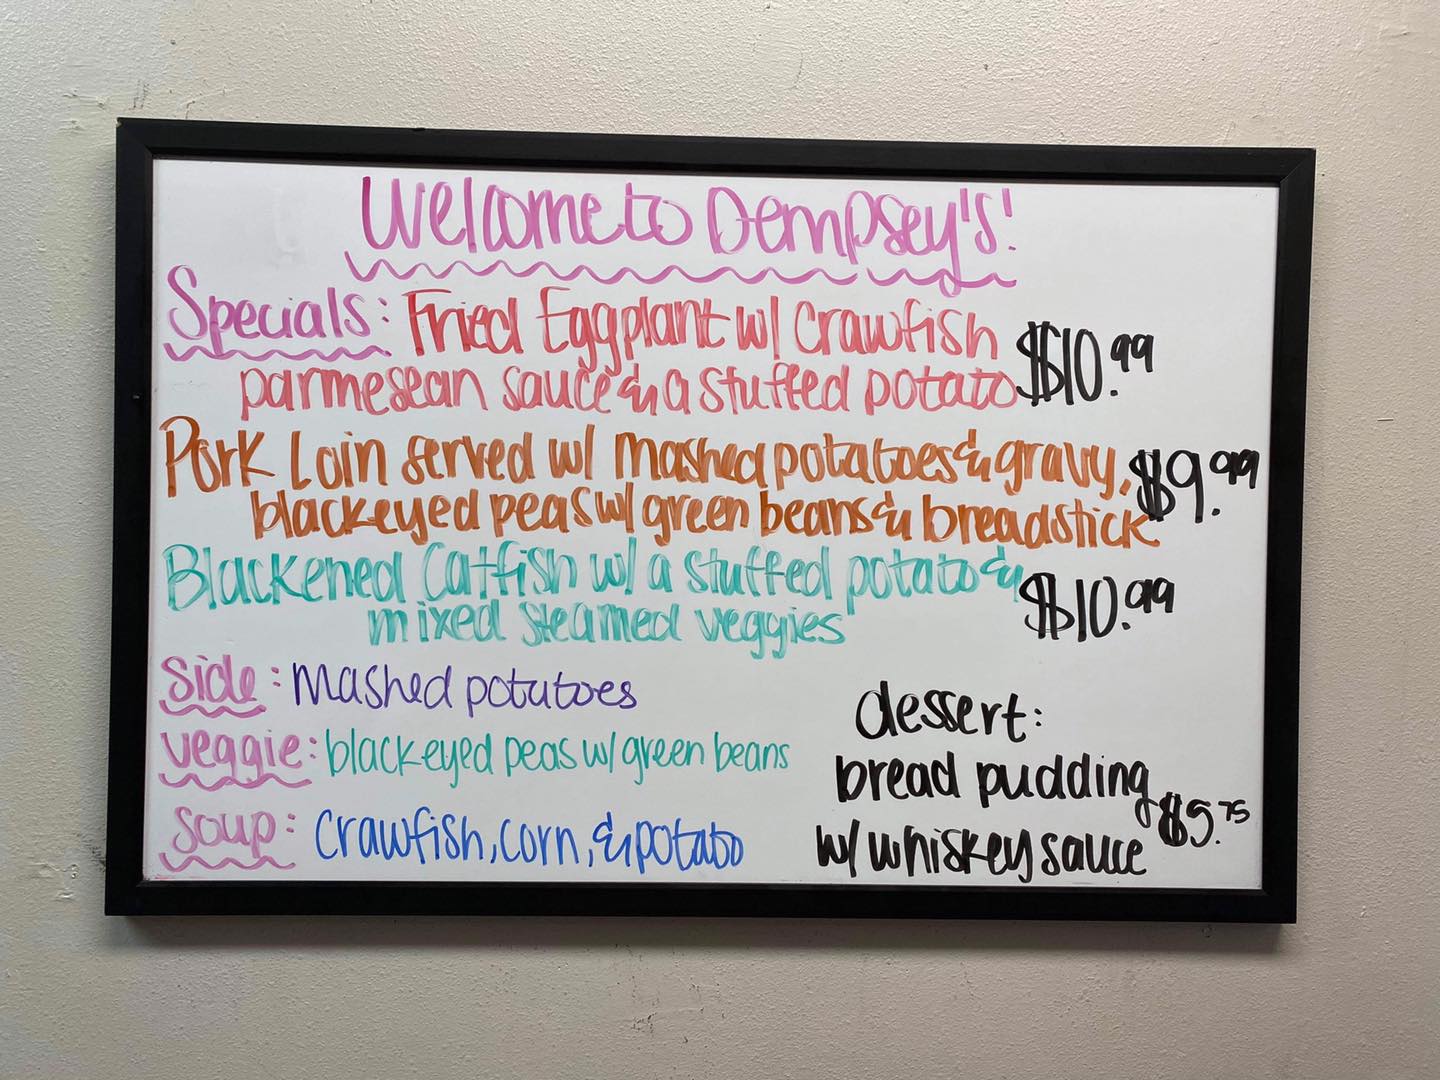 Welcome to Dempsey's!
Specials: Fried Eggplant w/ Crawfish
parmesean sauce & a stuffed potato $10.99
Pork Loin served w/ mashed potatoes & gravy,
blackeyed peas w/ green beans & breadstick $9.99
Blackened Catfish w/ a stuffed potato &
mixed steamed veggies $10.99
Side: Mashed potatoes
veggie: blackeyed peas w/ green beans
soup: Crawfish, corn, & potato
dessert:
bread pudding
w/ whiskey sauce $5.75